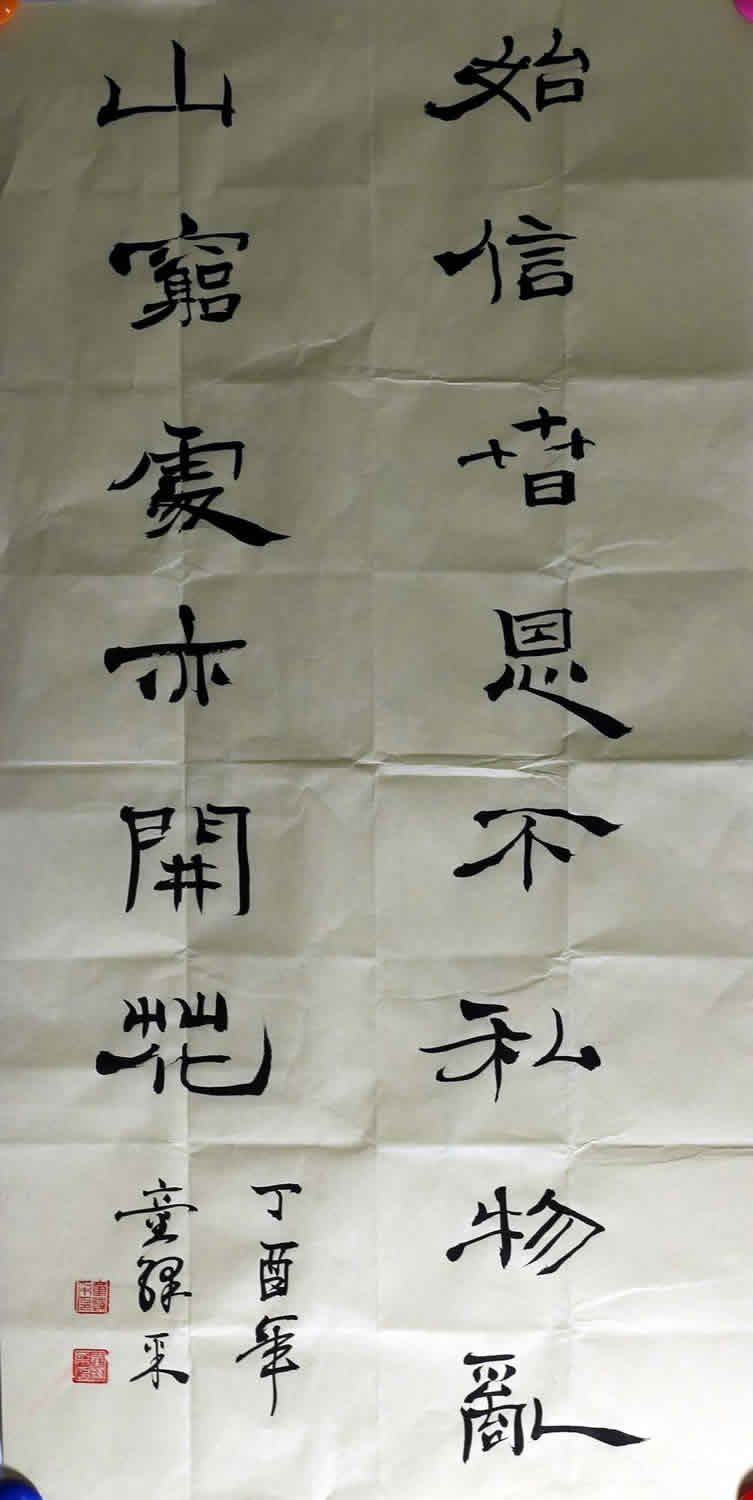 始信春恩不私物亂
山窮處亦開花
丁酉年
童采